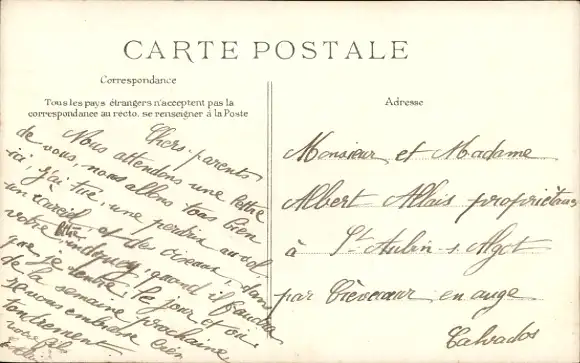 CARTE POSTALE
Correspondance
Tous les pays étrangers n'acceptent pas la
correspondance au recto. se renseigner à la Poste
Adresse
Chers parents
Nous attendons une lettre
de vous, nous allons tous bien
ici, j'ai tué, une perdrix au vol
un et des oiseaux, dans
votre indiquez, quand il faudra
que je rentre, le jour et où
de la semaine prochaine
nous embrasse bien
tendrement
Monsieur et Madame
Albert Allais propriétaires
à St. Aubin-s. Algot
par Crèvecœur en auge
Calvados